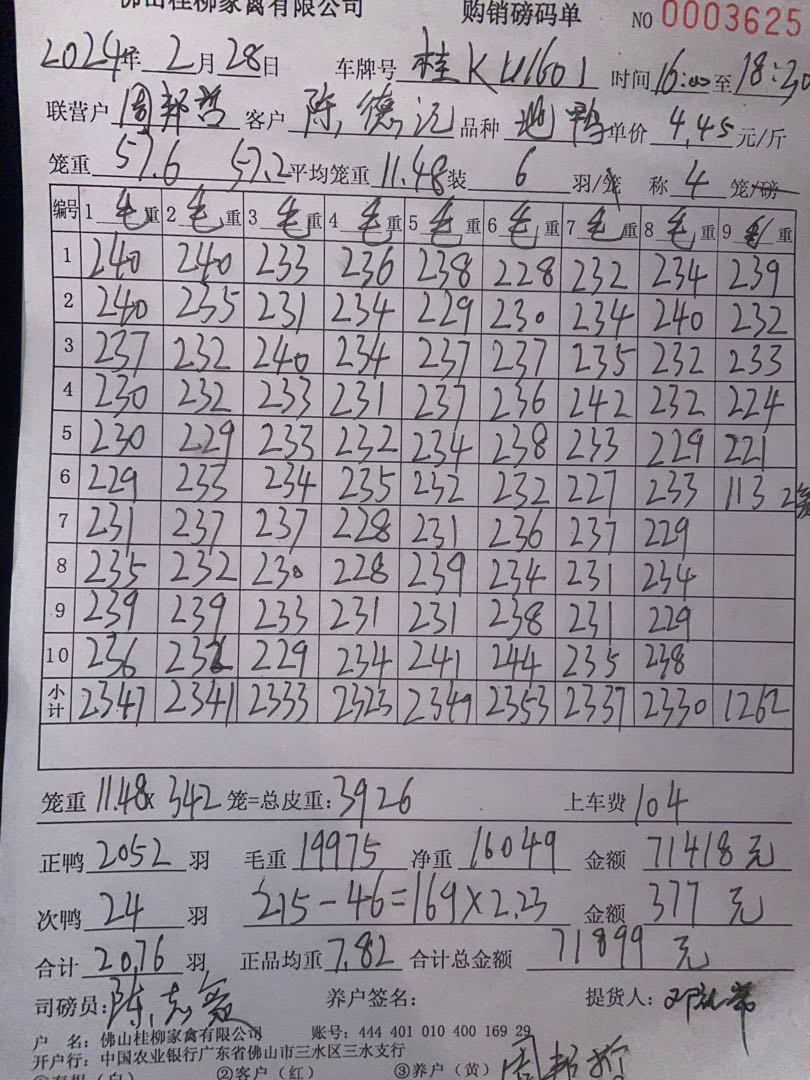 佛山桂柳家禽有限公司 购销磅码单 NO 0003625
2024年 2月 28日 车牌号 桂KU1601 时间 16:00至 18:30
联营户 周邦哲 客户 陈德沅 品种 地鸭 单价 4.45 元/斤
笼重 57.6 57.2 平均笼重 11.48 装 6 羽/笼 称 4 笼/磅
编号 1 毛重 2 毛重 3 毛重 4 毛重 5 毛重 6 毛重 7 毛重 8 毛重 9 毛重
1 240 240 233 236 238 228 232 234 239
2 240 235 231 234 229 230 234 240 232
3 237 232 240 234 237 237 235 232 233
4 230 232 233 231 237 236 242 232 224
5 230 229 233 232 234 238 233 229 221
6 229 233 234 235 232 232 227 233 113 2笼
7 231 237 237 228 231 236 237 229
8 235 232 230 228 239 234 231 234
9 239 239 233 231 231 238 231 229
10 236 232 229 234 241 244 235 238
小计 2347 2341 2333 2323 2349 2353 2337 2330 1262
笼重 11.48× 342 笼=总皮重: 3926 上车费 104
正鸭 2052 羽 毛重 19975 净重 16049 金额 71418 元
次鸭 24 羽 215-46=169×2.23 金额 377 元
合计 2076 羽 正品均重 7.82 合计总金额 71899 元
司磅员: 陈志 养户签名: 提货人: 邓
户 名: 佛山桂柳家禽有限公司 账号: 444 401 010 400 169 29
开户行: 中国农业银行广东省佛山市三水区三水支行
①存根(白) ②客户(红) ③养户(黄) 周邦哲